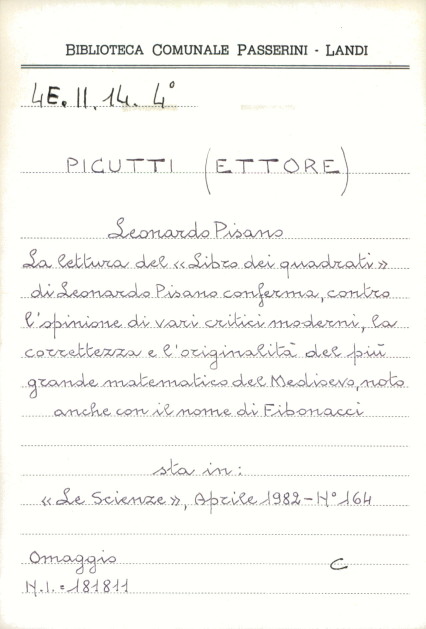 BIBLIOTECA COMUNALE PASSERINI - LANDI
4E. II. 14. 4°
PICUTTI (ETTORE)
Leonardo Pisano
La lettura del «Libro dei quadrati»
di Leonardo Pisano conferma, contro
l'opinione di vari critici moderni, la
correttezza e l'originalità del più
grande matematico del Medioevo, noto
anche con il nome di Fibonacci
sta in:
«Le Scienze», Aprile 1982 - N° 164
Omaggio C
N.I. = 181811